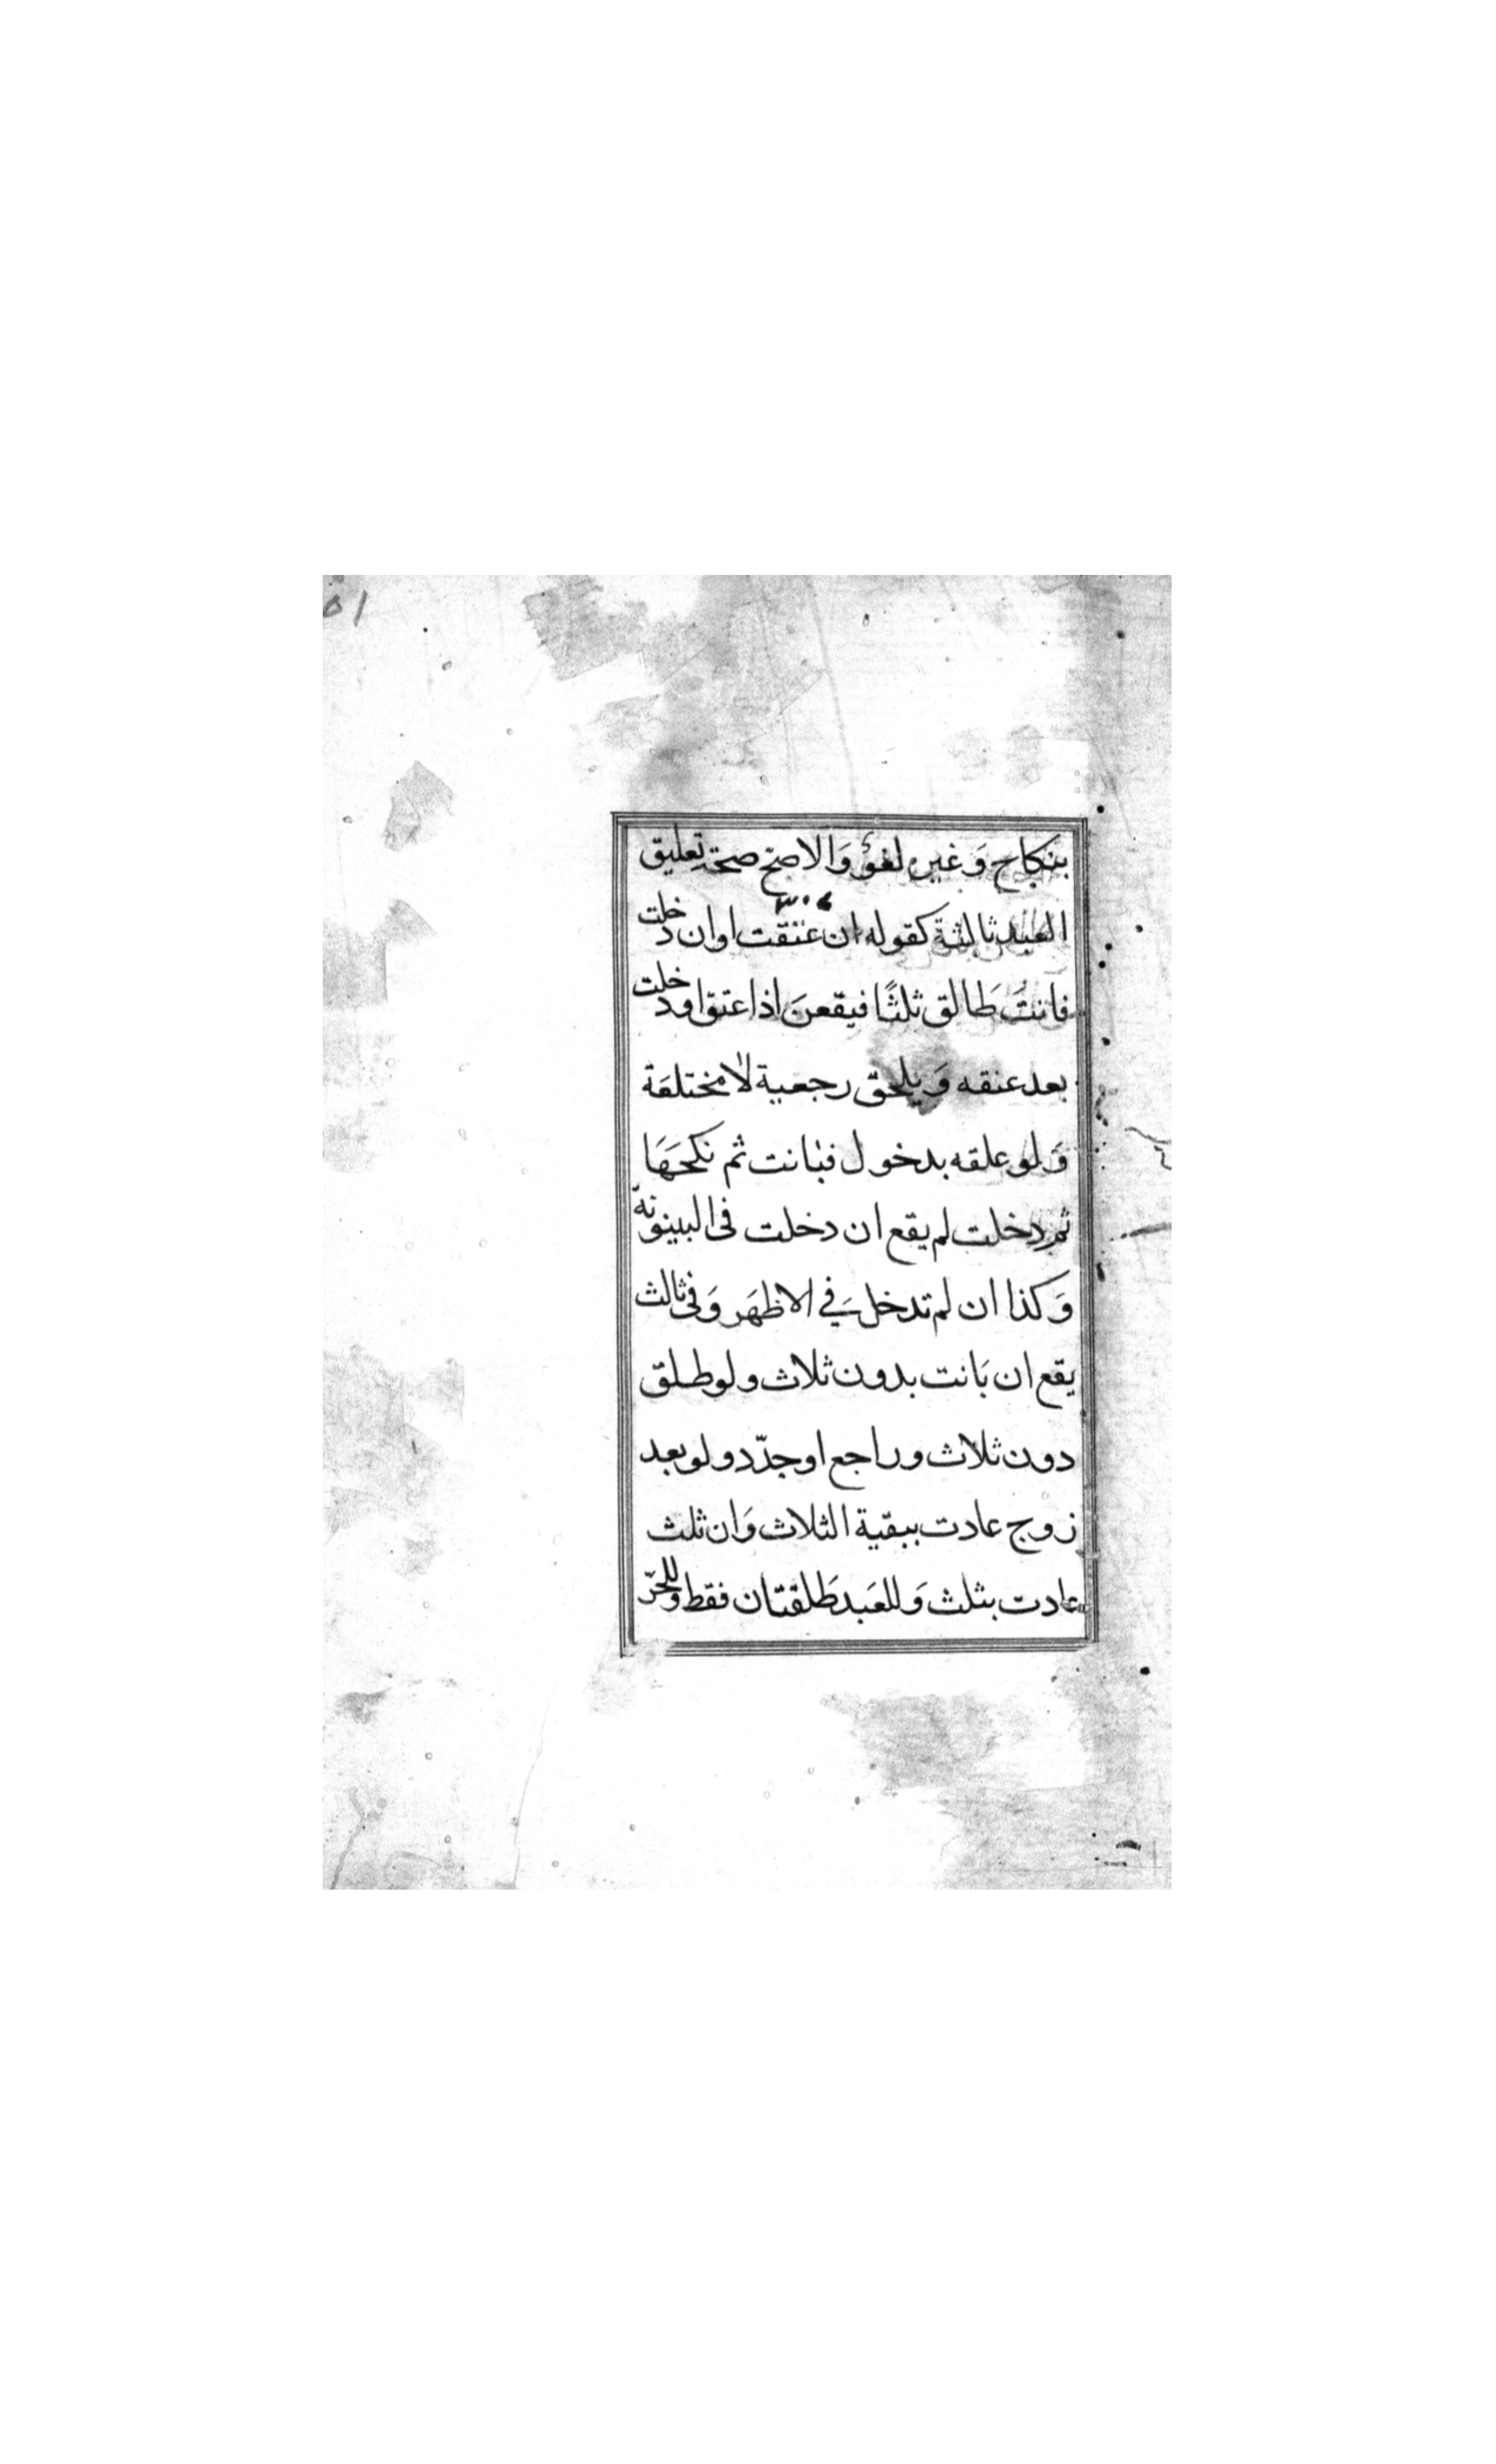 ٥١
بنكاح وَغيره لغوٌ وَالاصحّ صحّة تعليق
العبد ثالثة كقوله ان عتقت او ان دخلت
فانتَ طَالق ثلثًا فيقعنَ اذا عتق او دخلت
بعد عتقه وَيلحق رجعية لا مختلعَة
وَلو علقه بدخول فبانت ثم نكحهَا
ثم دخلت لم يقع ان دخلت فى البينونة
وَكذا ان لم تدخل في الاظهَر وَفى ثالث
يقع ان بَانت بدون ثلاث ولو طلق
دون ثلاث وراجع او جدّد ولو بعد
زوج عادت ببقية الثلاث وَان ثلث
عادت بثلث وَللعَبد طَلقتان فقط وللحرّ